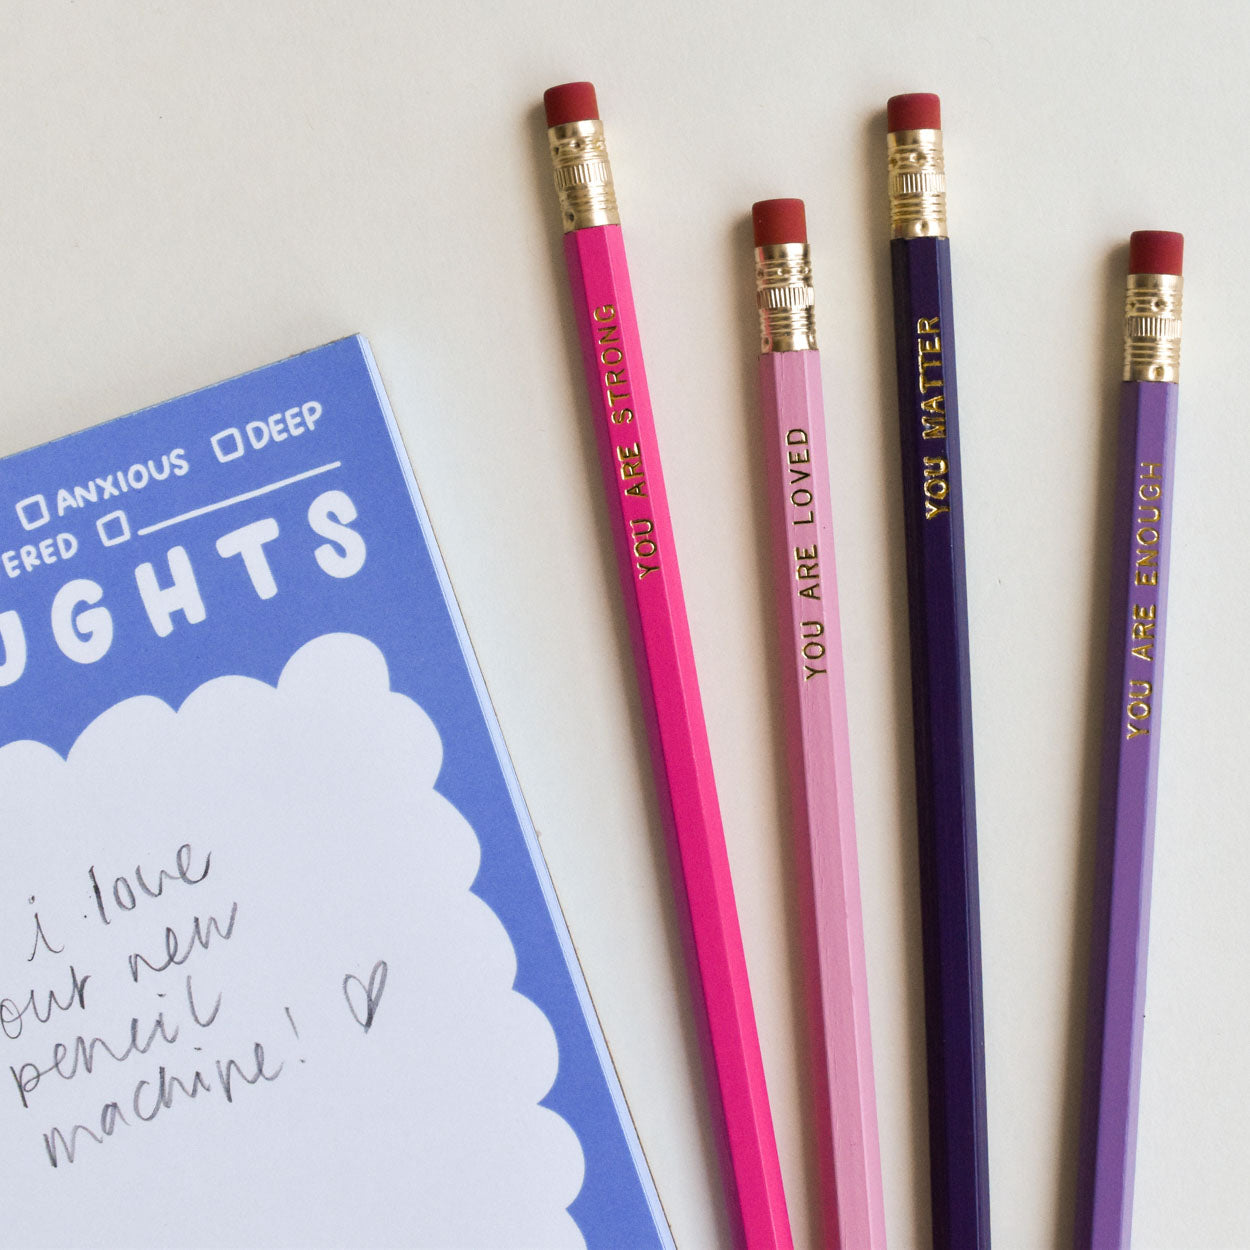 ANXIOUS DEEP
ERED
UGHTS
i love
our new
pencil
machine!
YOU ARE STRONG
YOU ARE LOVED
YOU MATTER
YOU ARE ENOUGH